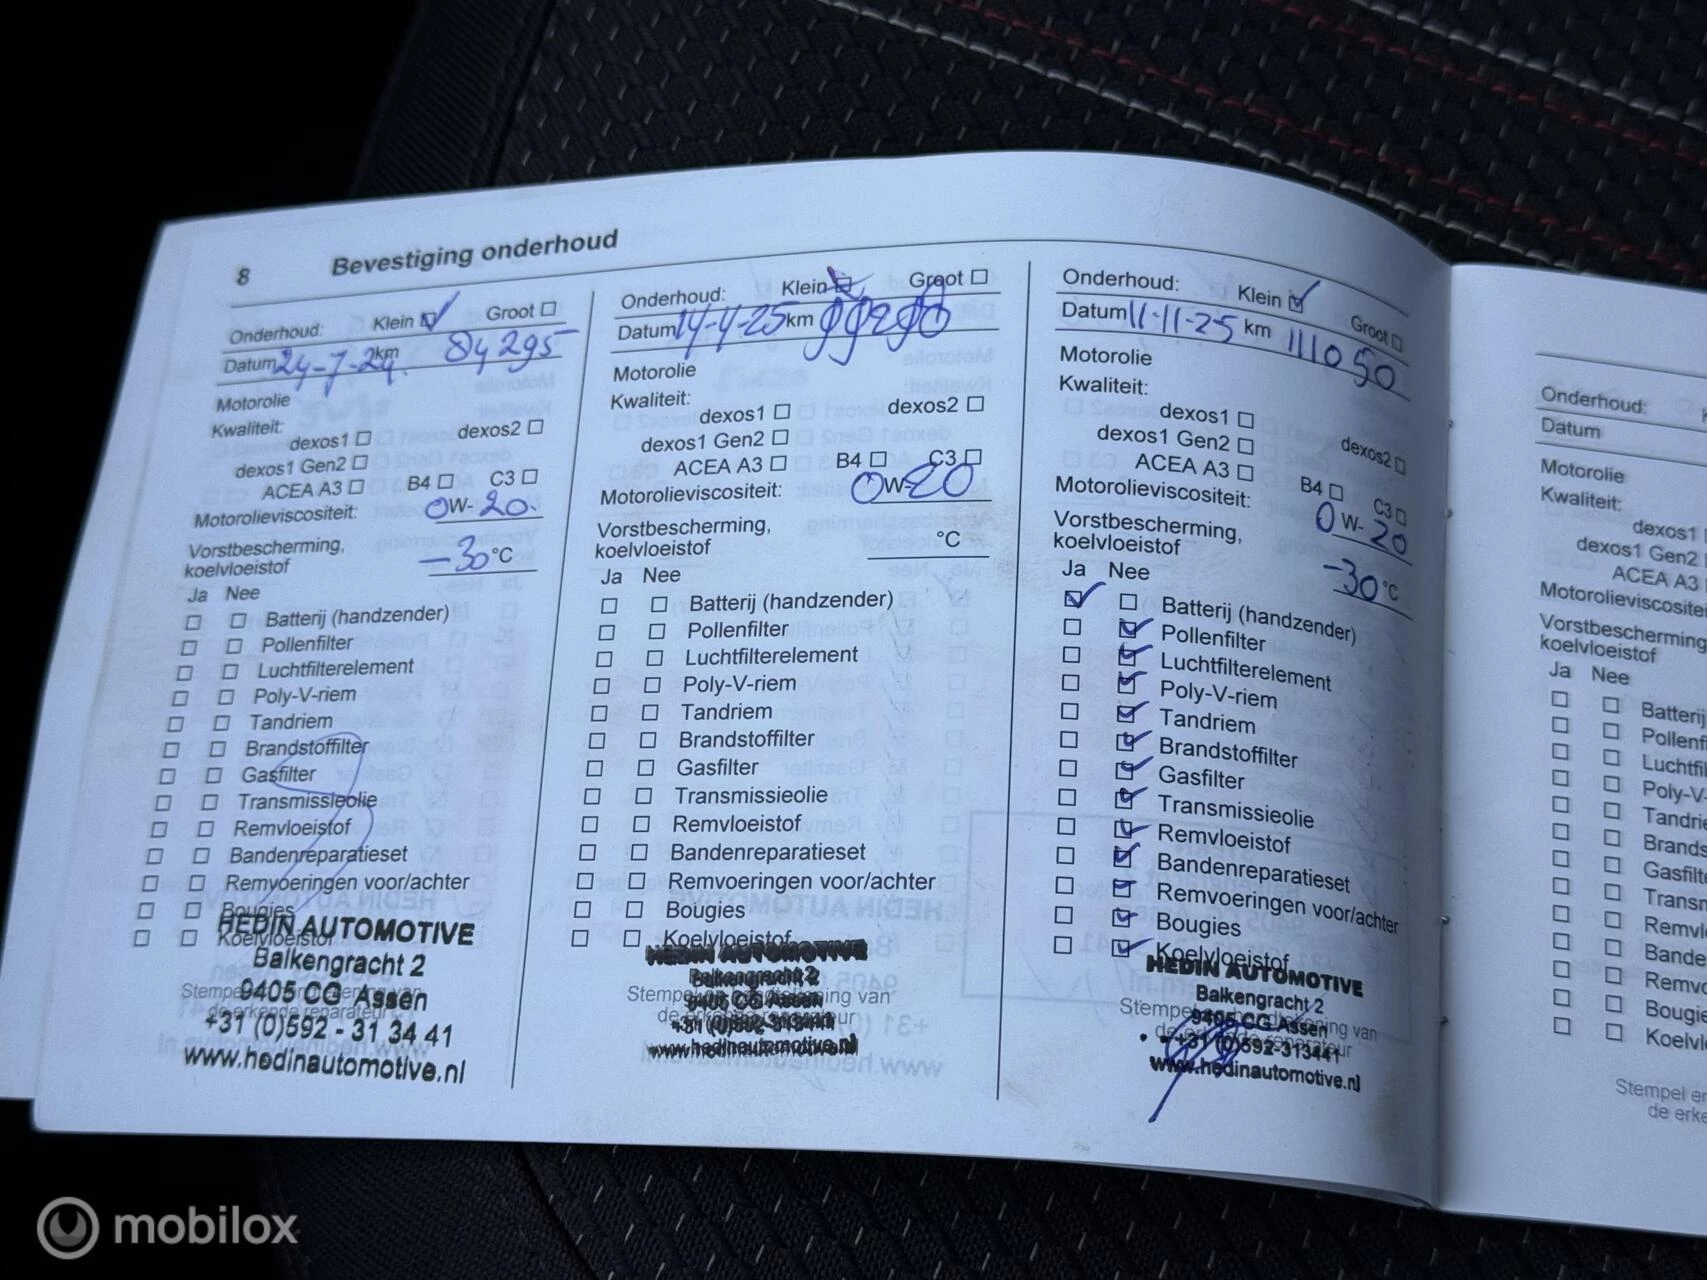 8 Bevestiging onderhoud
Onderhoud: Klein Groot
Datum 24-7-24. km 84295
Motorolie
Kwaliteit:
dexos1 dexos2
dexos1 Gen2
ACEA A3 B4 C3
Motorolieviscositeit: 0W-20.
Vorstbescherming,
koelvloeistof -30 °C
Ja Nee
Batterij (handzender)
Pollenfilter
Luchtfilterelement
Poly-V-riem
Tandriem
Brandstoffilter
Gasfilter
Transmissieolie
Remvloeistof
Bandenreparatieset
Remvoeringen voor/achter
Bougies
Koelvloeistof
HEDIN AUTOMOTIVE
Balkengracht 2
9405 CG Assen
+31 (0)592 - 31 34 41
www.hedinautomotive.nl
Onderhoud: Klein Groot
Datum 14-4-25 km
Motorolie
Kwaliteit:
dexos1 dexos2
dexos1 Gen2
ACEA A3 B4 C3
Motorolieviscositeit: 0W-20
Vorstbescherming,
koelvloeistof °C
Ja Nee
Batterij (handzender)
Pollenfilter
Luchtfilterelement
Poly-V-riem
Tandriem
Brandstoffilter
Gasfilter
Transmissieolie
Remvloeistof
Bandenreparatieset
Remvoeringen voor/achter
Bougies
Koelvloeistof
HEDIN AUTOMOTIVE
Balkengracht 2
Stempel en handtekening van
9405 CG Assen
de erkende reparateur
+31 (0)592-313441
www.hedinautomotive.nl
Onderhoud: Klein Groot
Datum 11-11-25 km 111050
Motorolie
Kwaliteit:
dexos1 dexos2
dexos1 Gen2
ACEA A3 B4 C3
Motorolieviscositeit: 0W-20
Vorstbescherming,
koelvloeistof -30 °C
Ja Nee
Batterij (handzender)
Pollenfilter
Luchtfilterelement
Poly-V-riem
Tandriem
Brandstoffilter
Gasfilter
Transmissieolie
Remvloeistof
Bandenreparatieset
Remvoeringen voor/achter
Bougies
Koelvloeistof
HEDIN AUTOMOTIVE
Balkengracht 2
Stempel en handtekening van
9405 CG Assen
de erkende reparateur
+31 (0)592-313441
www.hedinautomotive.nl
Onderhoud:
Datum
Motorolie
Kwaliteit:
dexos1
dexos1 Gen2
ACEA A3
Motorolieviscositei
Vorstbescherming
koelvloeistof
Ja Nee
Batterij
Pollenfi
Luchtfil
Poly-V-
Tandrie
Brands
Gasfilt
Transn
Remvl
Bande
Remvo
Bougie
Koelvl
Stempel en
de erke
mobilox